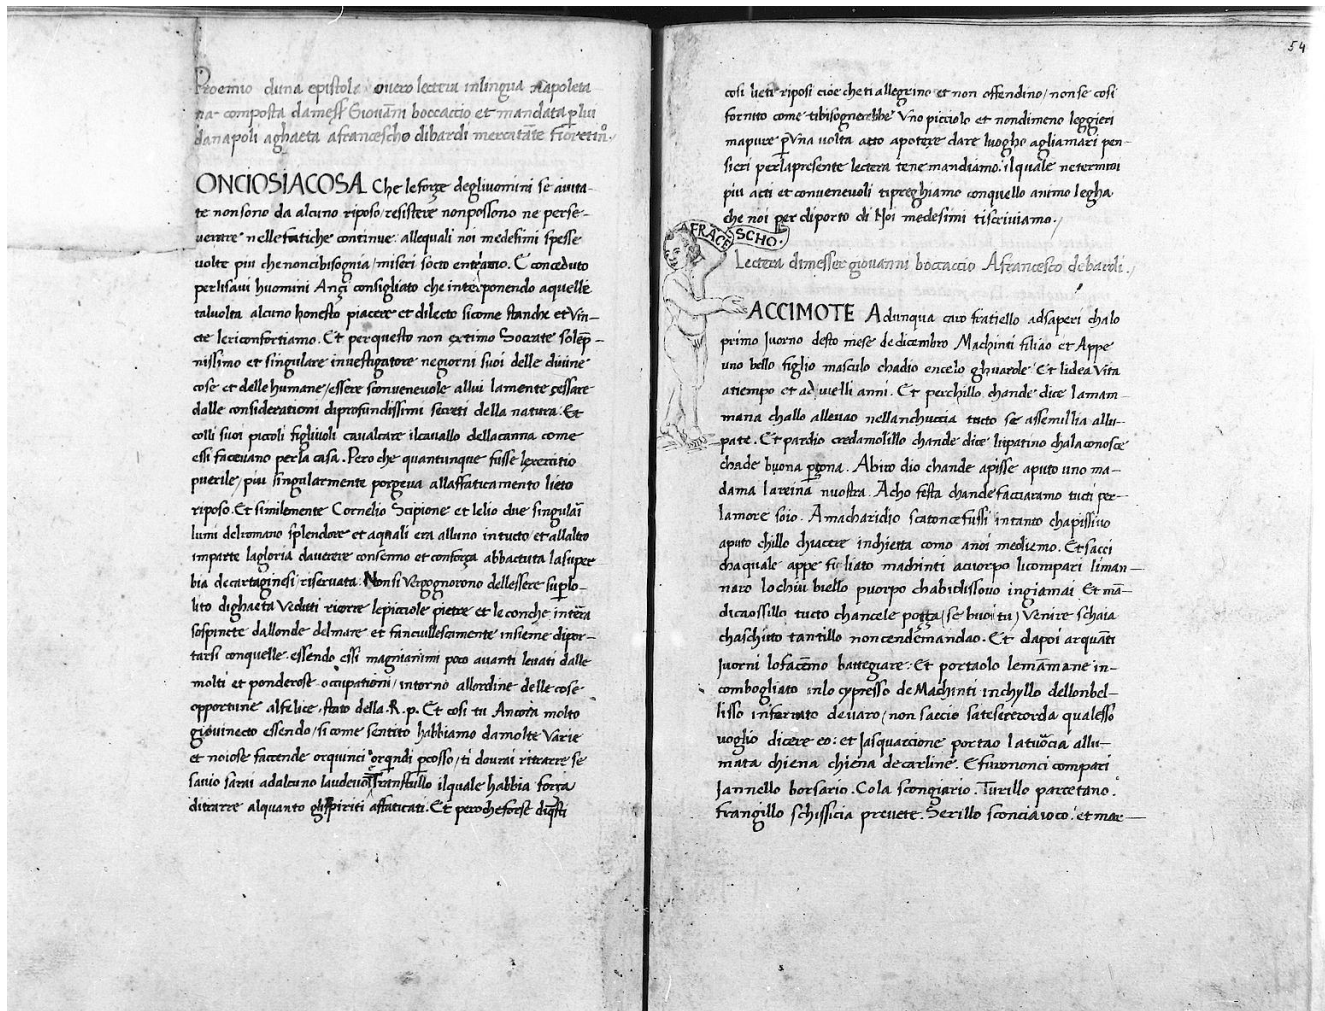 Proemio duna epistola overo lectera inlingua Napoleta-
na composta damess Giovanni boccaccio et mandata p lui
danapoli aghaeta afrancescho dibardi mercatate fiorētino
ONCIOSIACOSA Che leforze deglivomini se aiuta-
te nonsono da alcuno riposo/resistere nonpossono ne perse-
verare nellefatiche continue allequali noi medesimi spesse
volte piu chenoncibisognia/miseri socto entrāmo. E conceduto
perlisavi huomini Anzi consigliato che interponendo aquelle
talvolta alcuno honesto piacere et dilecto sicome stanche et Vin-
cte lericonfortiamo. Et perquesto non extimo Socrate solēp-
nissimo et singulare investigatore negiorni suoi delle divine
cose et delle humane/essere sconvenevole allui lamente cessare
dalle considerationi diprofundissimi secreti della natura. Et
colli suoi piccoli figliuoli cavalcare ilcavallo dellacanna come
essi facevano perla casa. Pero che quantunque fusse lexercitio
puerile/piu singularmente porgeva allaffaticamento lieto
riposo. Et similemente Cornelio Scipione et lelio due singulaī
lumi delromano splendore et aquali era alluno intucto et allalto
imparte lagloria daverere consenno et conforza abbactuta lasuper
bia decartaginesi riservata. Nonsi Vergognorono dellessere supˉlo-
lito dighaeta Veduti ricorre lepicciole pietre et le conche intēra
sospincte dallonde delmare et fanciullescamente insieme dipor-
tarsi conquelle essendo essi magnianimi poco avanti levati dalle
molti et ponderose occupationi/intorno allordine delle cose
opportune alfelice stato della .R. p. Et cosi tu Ancora molto
giovinecto essendo/si come sentito habbiamo damolte Varie
et noiose faccende orquinci orqndi pcosso/ti dovrai ritrarre se
savio sarai adalcuno laudevol Transtullo ilquale habbia forza
ditrarre alquanto glispiriti affaticati. Et perocheforse diqsti
54
cosi lieti riposi cioe cheti allegrino et non offendino/nonse cosi
fornito come tibisognerebbe Uno picciolo et nondimeno leggieri
mapure p Una volta atto apotere dare luogho agliamari pen-
sieri perlapresente lectera tene mandiamo. ilquale netermini
piu acti et convenevoli tipreghiamo conquello animo legha
che noi per diporto di Noi medesimi tiscriviamo.
AFRĀCE SCHO.
Lectera dimesser giovanni boccaccio A francesco debardi.
ACCIMOTE Adunqua caro fratiello adsaperi chalo
primo juorno desto mese dedicembro Machinti filiao et Appe
uno bello figlio masculo chadio encelo ghuarole Et lidea Vita
atiempo et ad vielli anni. Et perchillo chande dice lamam-
mana challo allevao nellanchuccia tucto se assemillia allu-
pate. Et pardio credamolillo chande dice lipatino chalaconosce
chade buona pzona. Abiro dio chande apisse aputo uno ma-
dama lareina nuostra. Acho festa chande facciaramo tucti per-
lamore soio. Amacharidio scatoncefussi intanto chapissivo
aputo chillo chiacere inchietta como anoi mediemo. Et sacci
cha quale appe figliato machinti acvorpo licompari liman-
naro lo chiu biello puorpo chabidissovo ingiamai Et mā-
dicaossillo tucto chancele pozza/se buoi tu/Venire schaia
chaschitto tantillo noncendemandao. Et dapoi arquāti
juorni lofacēmo battegiare: Et portaolo lemāmane in-
combogliato inlo cypresso de Machinti inchyllo dellonbel-
lisso infertato devaro/non saecio satesererorda qualesso
uoglio dicere eo: et Jasquarcione portao latuōcia allu-
mata chiena chiena decarline. E furononci compari
Jannello borsario. Cola scongiario. Turillo parcetano.
frangillo schissicia prevete. Serillo sconciaioco. et mar-